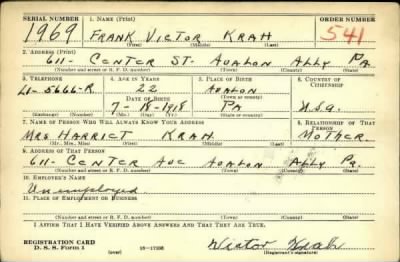 SERIAL NUMBER 1. NAME (Print) ORDER NUMBER
1969 FRANK VICTOR KRAH 541
(First) (Middle) (Last)
2. ADDRESS (Print)
611- CENTER ST. AVALON ALLY PA.
(Number and street or R. F. D. number) (Town) (County) (State)
3. TELEPHONE 4. AGE IN YEARS 5. PLACE OF BIRTH 6. COUNTRY OF CITIZENSHIP
LI-5666-R 22 AVALON
DATE OF BIRTH (Town or county)
7-18-1918 PA U.S.A.
(Exchange) (Number) (Mo.) (Day) (Yr.) (State or country)
7. NAME OF PERSON WHO WILL ALWAYS KNOW YOUR ADDRESS 8. RELATIONSHIP OF THAT PERSON
MRS HARRIET KRAH MOTHER.
(Mr., Mrs., Miss) (First) (Middle) (Last)
9. ADDRESS OF THAT PERSON
611- CENTER AVE AVALON ALLY PA.
(Number and street or R. F. D. number) (Town) (County) (State)
10. EMPLOYER'S NAME
Unemployed
11. PLACE OF EMPLOYMENT OR BUSINESS
(Number and street or R. F. D. number) (Town) (County) (State)
I AFFIRM THAT I HAVE VERIFIED ABOVE ANSWERS AND THAT THEY ARE TRUE.
REGISTRATION CARD
D. S. S. Form 1 (over) Victor Krah
(Registrant's signature)